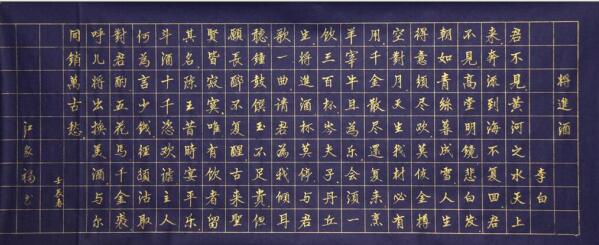 將進酒
李白
君不見黃河之水天上
来奔流到海不复回君
不見高堂明鏡悲白发
朝如青絲暮成雪人生
得意須尽欢莫使金樽
空對月天生我材必有
用千金散尽還复来烹
羊宰牛且為樂會須一
飲三百杯岑夫子丹丘
生將進酒杯莫停與君
歌一曲请君為我倾耳
聽鐘鼓饌玉不足貴但
願長醉不复醒古来聖
賢皆寂寞唯有飲者留
其名陳王昔時宴平樂
斗酒十千恣欢謔主人
何為言少钱徑須沽取
對君酌五花馬千金裘
呼儿將出換美酒與尔
同銷萬古愁
壬辰春
江家福书